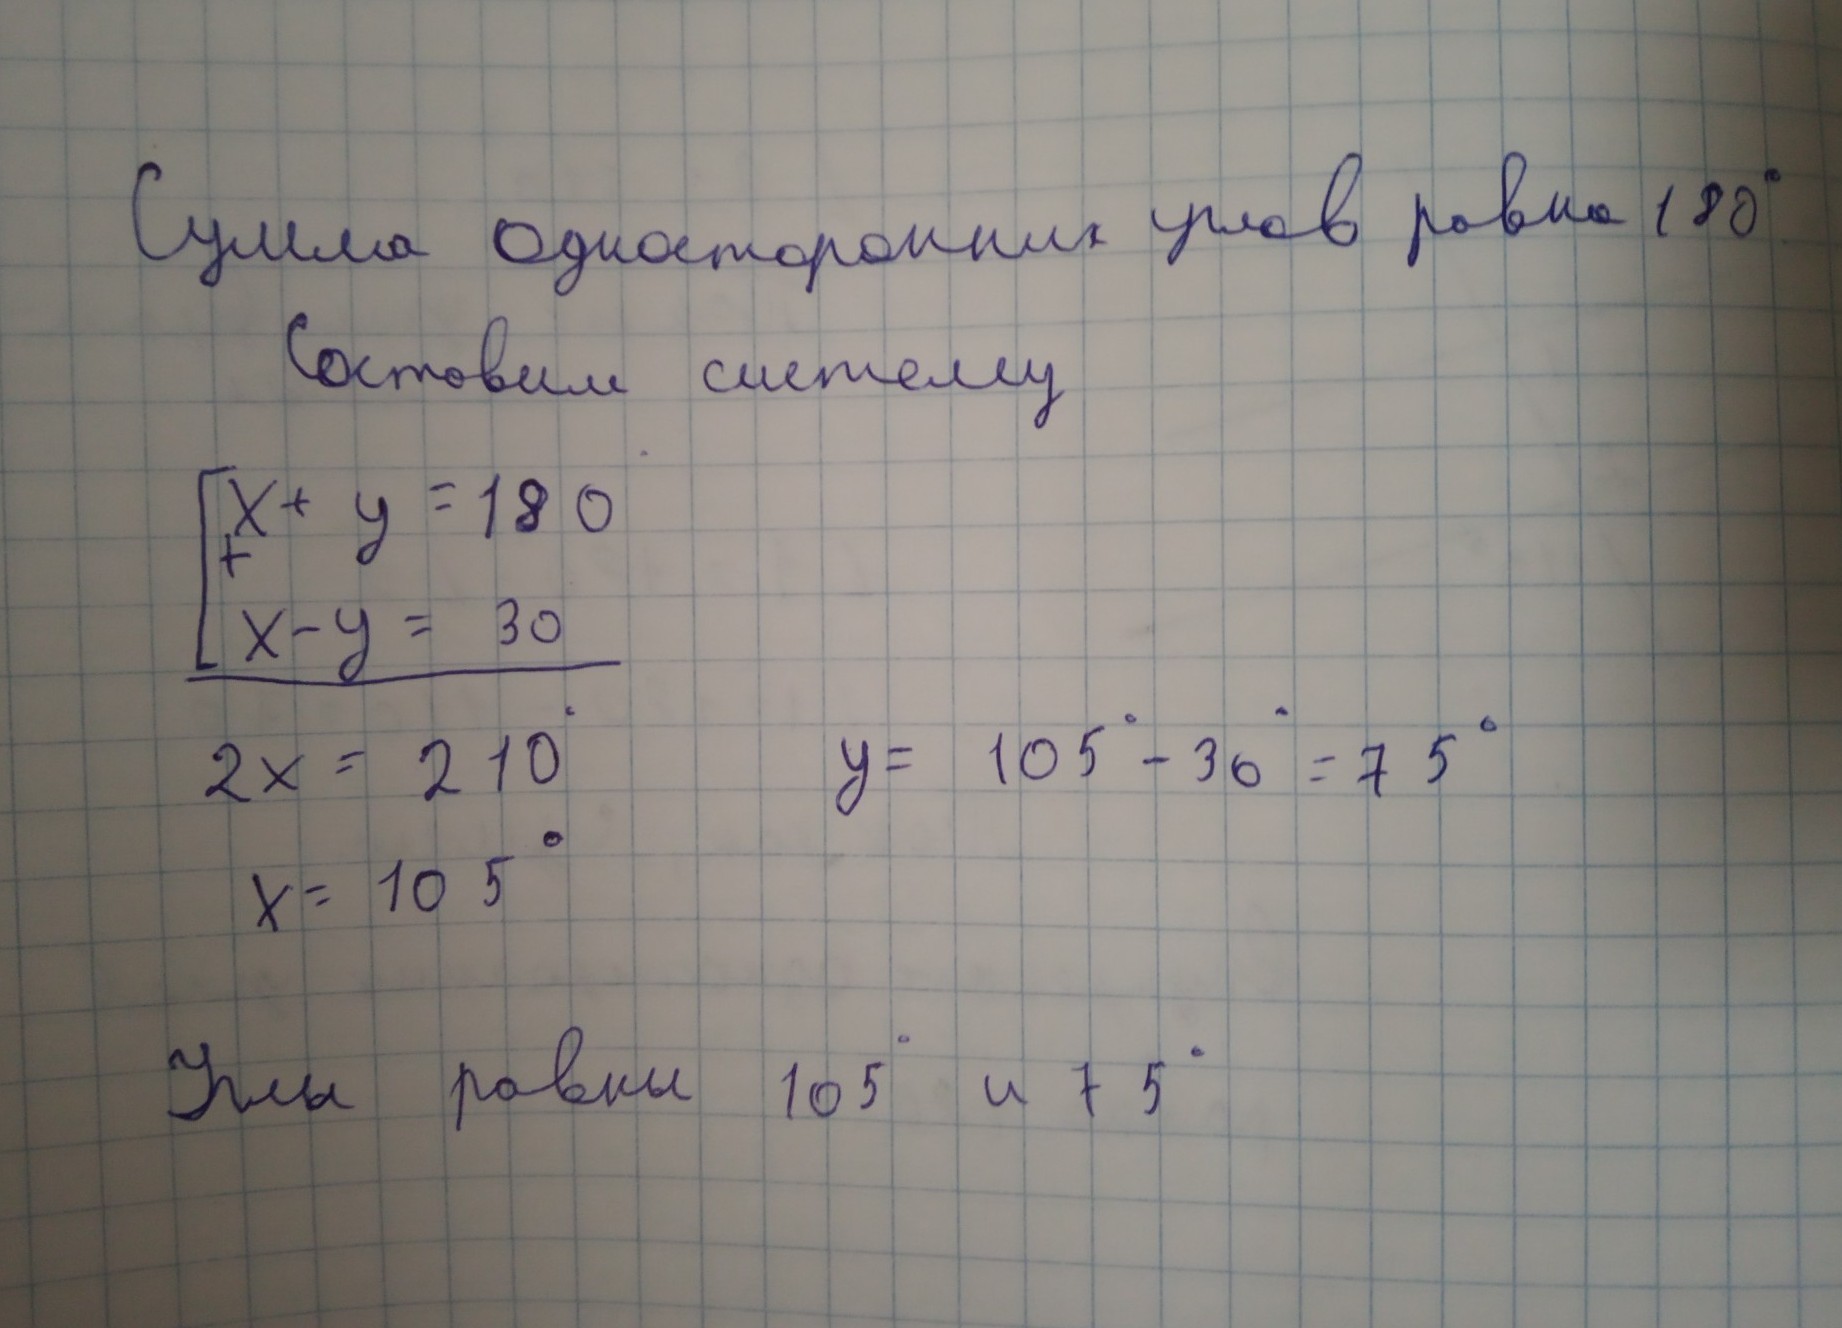 Сумма односторонних углов равна 180°
Составим систему
x + y = 180
+
x - y = 30
2x = 210° y = 105° - 30° = 75°
x = 105°
Углы равны 105° и 75°